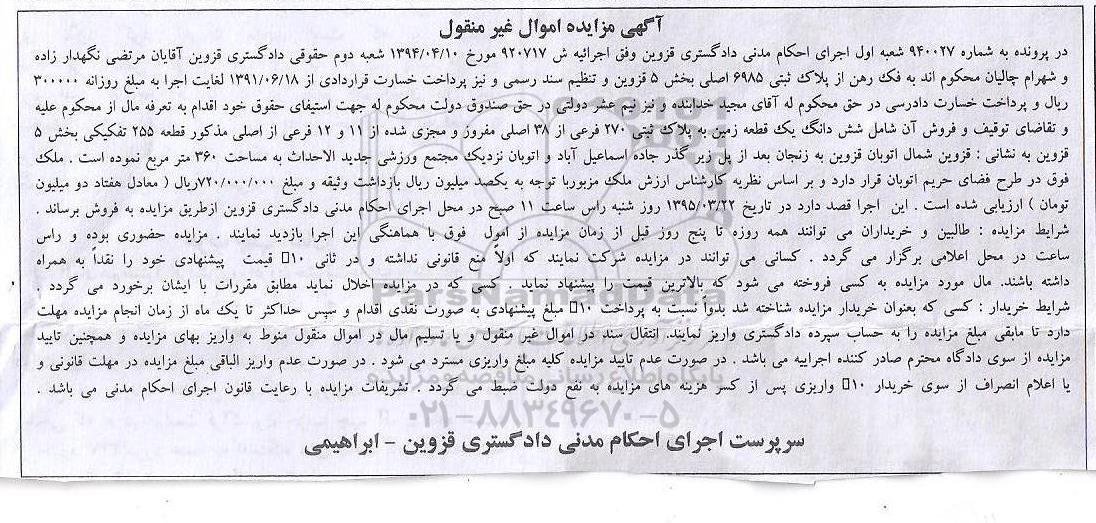 آگهی مزایده اموال غیر منقول
در پرونده به شماره ۹۴۰۰۲۷ شعبه اول اجرای احکام مدنی دادگستری قزوین وفق اجرائیه ش ۹۲۰۷۱۷ مورخ ۱۳۹۴/۰۴/۱۰ شعبه دوم حقوقی دادگستری قزوین آقایان مرتضی نگهدار زاده
و شهرام چالیان محکوم اند به فک رهن از پلاک ثبتی ۶۹۸۵ اصلی بخش ۵ قزوین و تنظیم سند رسمی و نیز پرداخت خسارت قراردادی از ۱۳۹۱/۰۶/۱۸ لغایت اجرا به مبلغ روزانه ۳۰۰۰۰۰
ریال و پرداخت خسارت دادرسی در حق محکوم له آقای مجید خدابنده و نیز نیم عشر دولتی در حق صندوق دولت محکوم له جهت استیفای حقوق خود اقدام به تعرفه مال از محکوم علیه
و تقاضای توقیف و فروش آن شامل شش دانگ یک قطعه زمین به پلاک ثبتی ۲۷۰ فرعی از ۳۸ اصلی مفروز و مجزی شده از ۱۱ و ۱۲ فرعی از اصلی مذکور قطعه ۲۵۵ تفکیکی بخش ۵
قزوین به نشانی : قزوین شمال اتوبان قزوین به زنجان بعد از پل زیر گذر جاده اسماعیل آباد و اتوبان نزدیک مجتمع ورزشی جدید الاحداث به مساحت ۳۶۰ متر مربع نموده است . ملک
فوق در طرح فضای حریم اتوبان قرار دارد و بر اساس نظریه کارشناس ارزش ملک مزبوربا توجه به یکصد میلیون ریال بازداشت وثیقه و مبلغ ۷۲۰/۰۰۰/۰۰۰ریال ( معادل هفتاد دو میلیون
تومان ) ارزیابی شده است . این اجرا قصد دارد در تاریخ ۱۳۹۵/۰۳/۲۲ روز شنبه راس ساعت ۱۱ صبح در محل اجرای احکام مدنی دادگستری قزوین ازطریق مزایده به فروش برساند .
شرایط مزایده : طالبین و خریداران می توانند همه روزه تا پنج روز قبل از زمان مزایده از امول فوق با هماهنگی این اجرا بازدید نمایند . مزایده حضوری بوده و راس
ساعت در محل اعلامی برگزار می گردد . کسانی می توانند در مزایده شرکت نمایند که اولاً منع قانونی نداشته و در ثانی ۱۰ قیمت پیشنهادی خود را نقداً به همراه
داشته باشند. مال مورد مزایده به کسی فروخته می شود که بالاترین قیمت را پیشنهاد نماید . کسی که در مزایده اخلال نماید مطابق مقررات با ایشان برخورد می گردد .
شرایط خریدار : کسی که بعنوان خریدار مزایده شناخته شد بدواً نسبت به پرداخت ۱۰ مبلغ پیشنهادی به صورت نقدی اقدام و سپس حداکثر تا یک ماه از زمان انجام مزایده مهلت
دارد تا مابقی مبلغ مزایده را به حساب سپرده دادگستری واریز نمایند. انتقال سند در اموال غیر منقول و یا تسلیم مال در اموال منقول منوط به واریز بهای مزایده و همچنین تایید
مزایده از سوی دادگاه محترم صادر کننده اجراییه می باشد . در صورت عدم تایید مزایده کلیه مبلغ واریزی مسترد می شود . در صورت عدم واریز الباقی مبلغ مزایده در مهلت قانونی و
یا اعلام انصراف از سوی خریدار ۱۰ واریزی پس از کسر هزینه های مزایده به نفع دولت ضبط می گردد . تشریفات مزایده با رعایت قانون اجرای احکام مدنی می باشد .
سرپرست اجرای احکام مدنی دادگستری قزوین - ابراهیمی
ParsNamadData
پایگاه اطلاع رسانی مناقصه و مزایده
۰۲۱-۸۸۳۴۹۶۷۰-۵